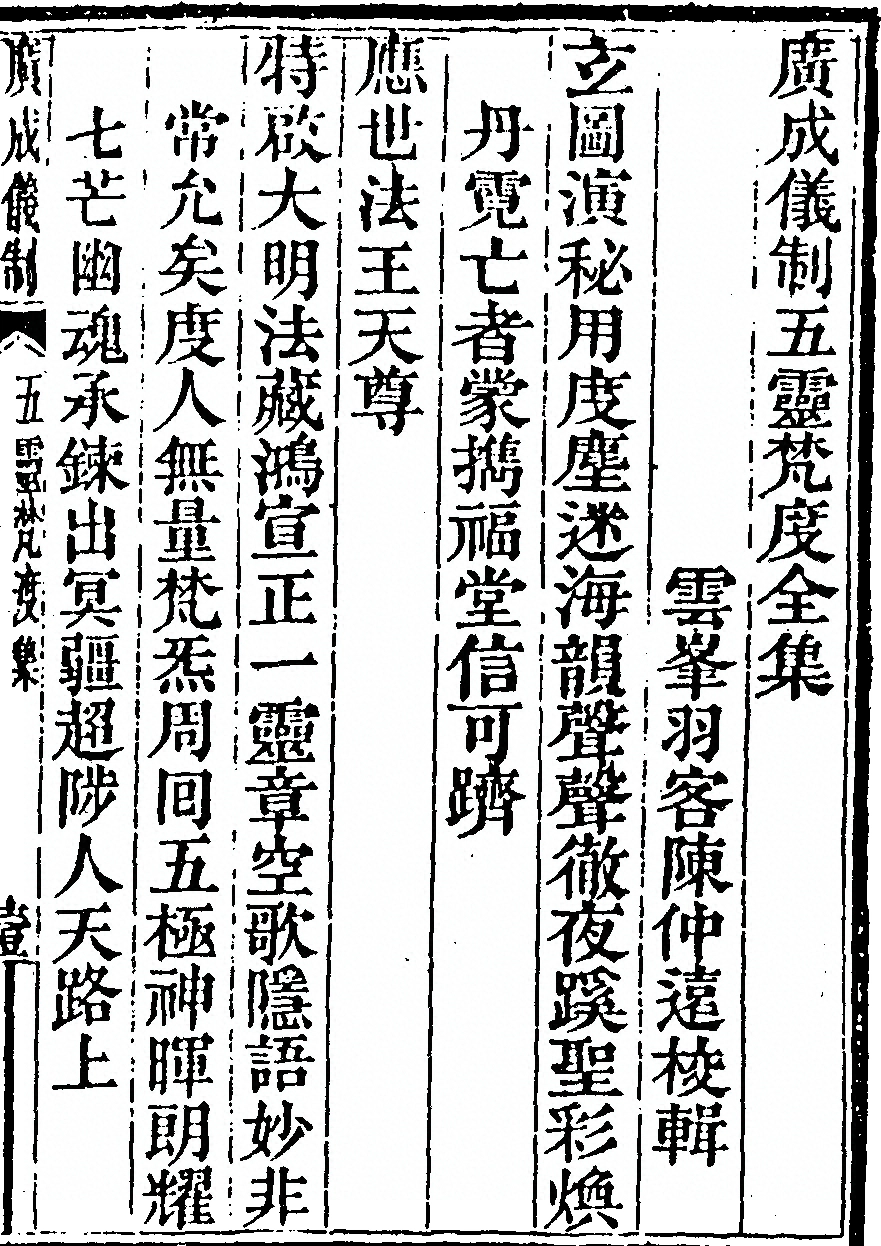 廣成儀制五靈梵度全集
雲峯羽客陳仲遠校輯
玄圖演秘用度塵迷海韻聲聲徹夜蹊聖彩煥
丹霓亡者蒙攜福堂信可躋
應世法王天尊
特啟大明法藏鴻宣正一靈章空歌隱語妙非
常允矣度人無量梵炁周回五極神暉朗耀
七芒幽魂承鍊出冥疆超陟人天路上
廣成儀制 五靈梵度集 壹